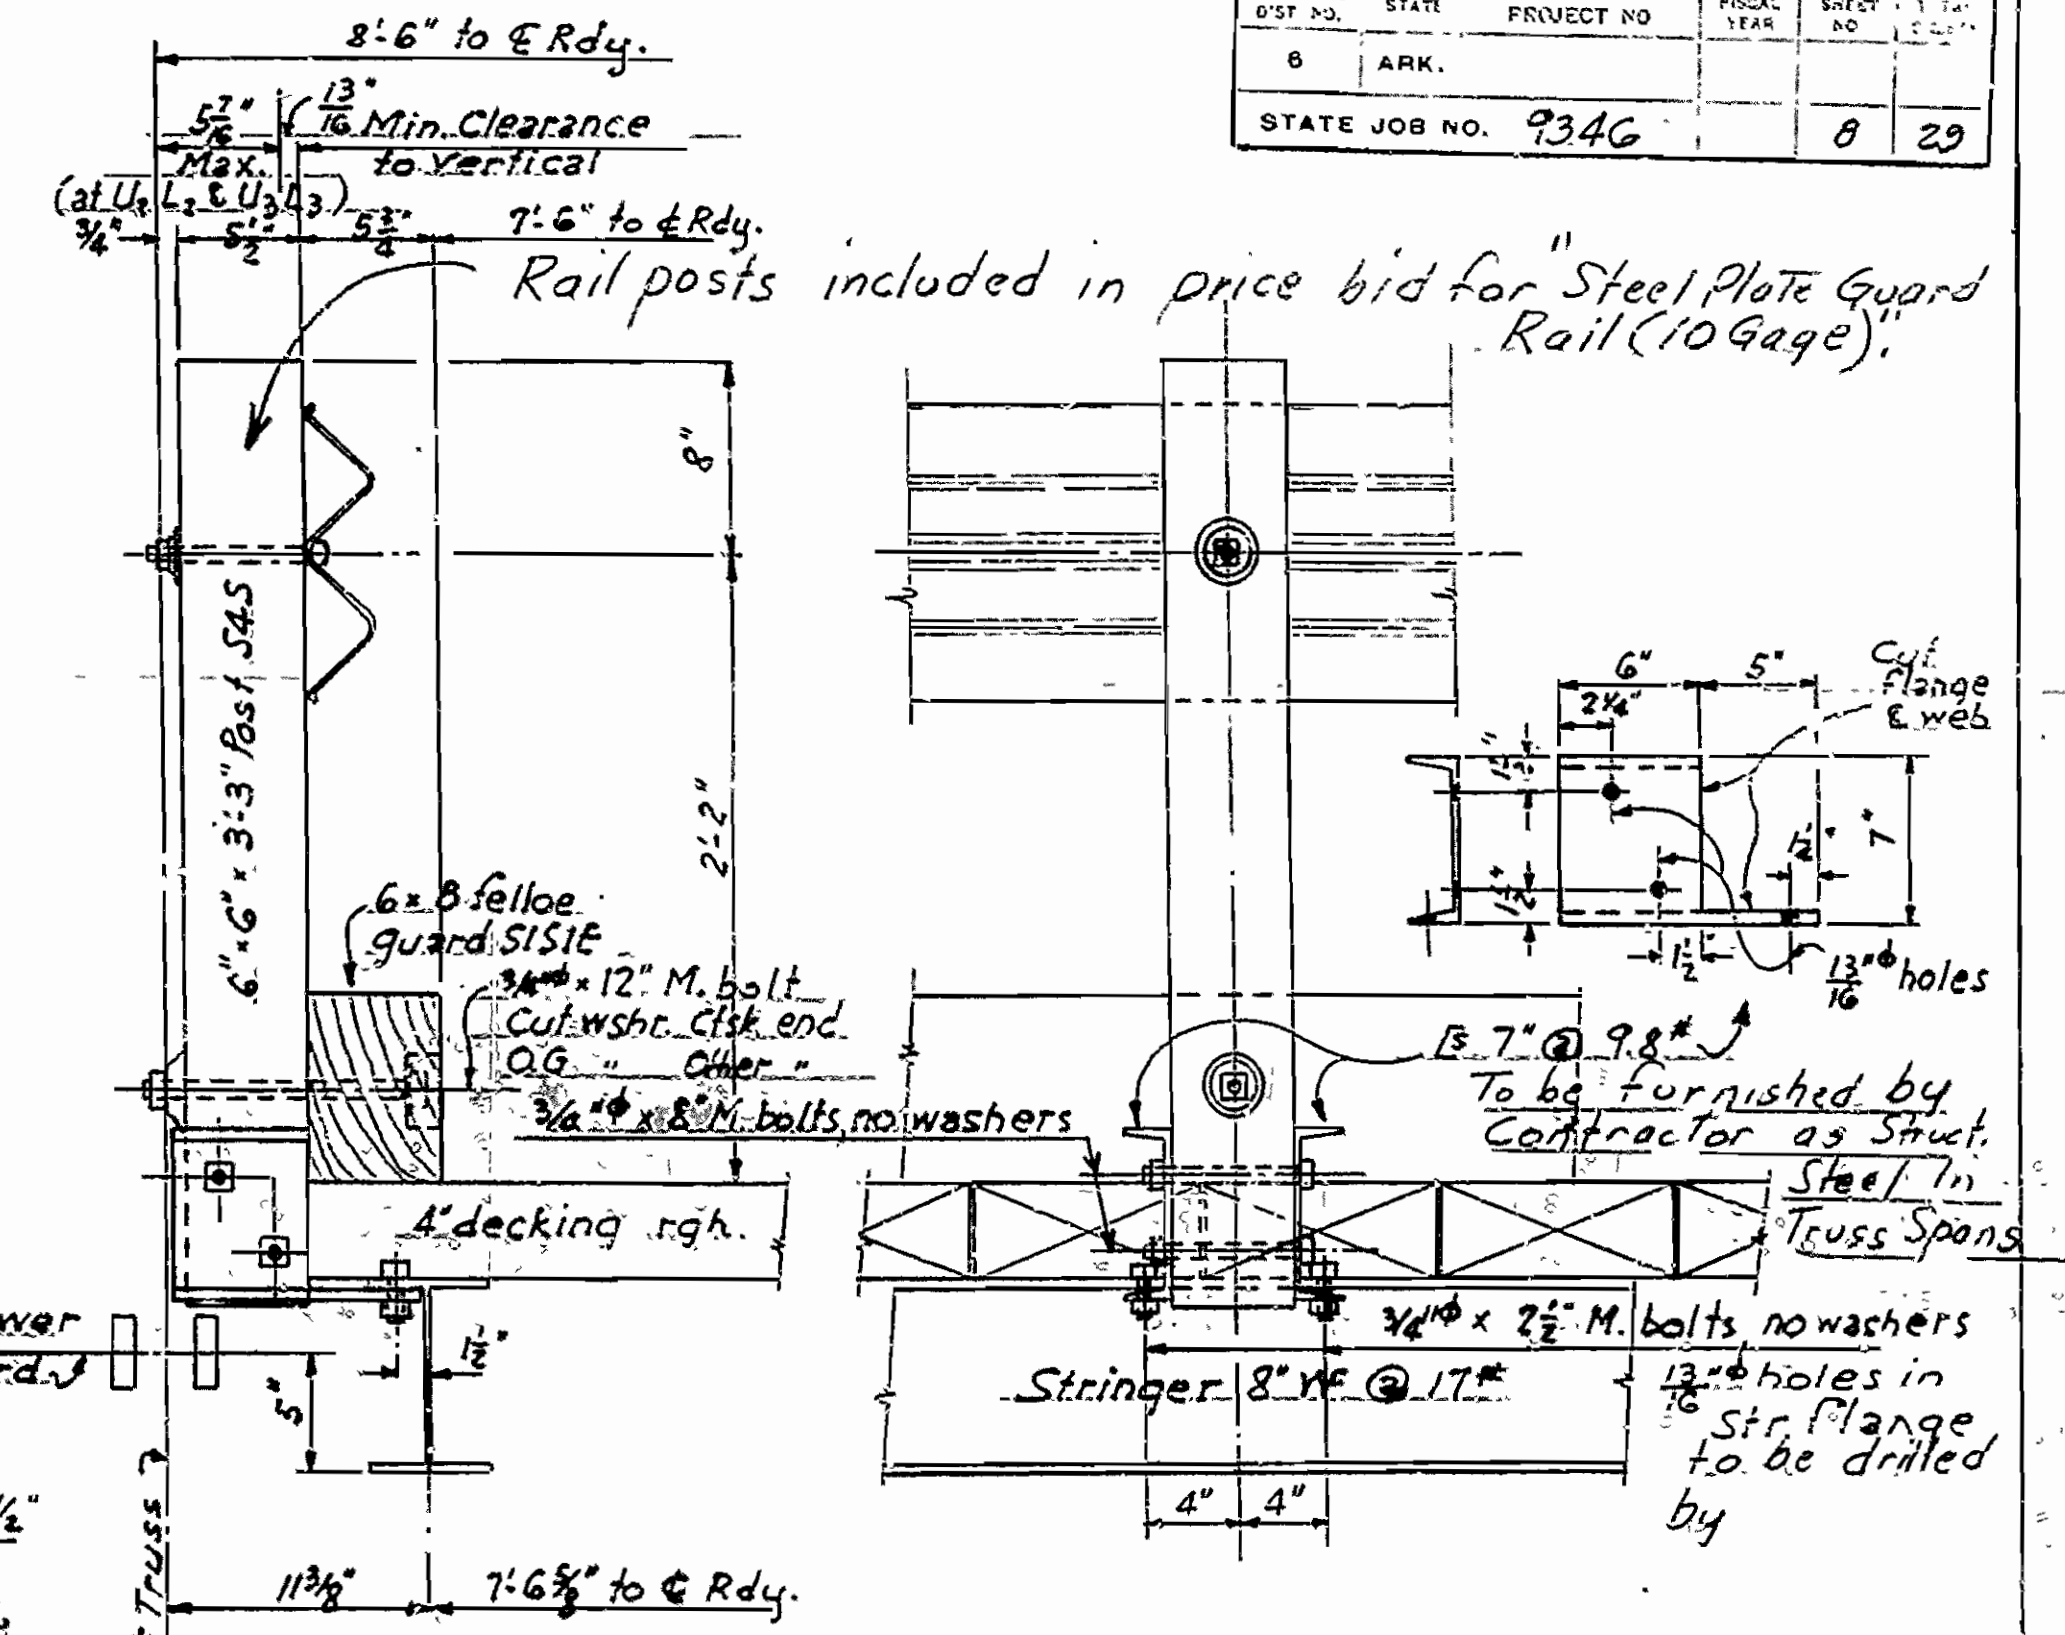 DIST NO.
STATE
PROJECT NO
FISCAL YEAR
SHEET NO
6
ARK.
STATE JOB NO. 9346
8
29
8'-6" to ℄ Rdy.
5 7/16"
Max.
(at U2 L2 & U3 L3)
13/16" Min. Clearance
to vertical
3/4"
5 1/2"
5 3/4"
7'-6" to ℄ Rdy.
Rail posts included in price bid for "Steel Plate Guard
Rail (10 Gage)".
8"
2'-2"
6" x 6" x 3'-3" Post S4S
6 x 8 felloe
guard S1S1E
3/4"φ x 12" M. bolt
Cut wshr. ctsk end
O.G. " Other "
3/4"φ x 8" M. bolts, no washers
4" decking rgh.
1 1/2"
5"
11 3/8"
7'-6 5/8" to ℄ Rdy.
Truss
6"
5"
2 1/4"
Cut
flange
& web
1 1/2"
1 1/2"
1 1/2"
1 1/2"
7"
13/16"φ holes
[s 7" @ 9.8#
To be furnished by
Contractor as Struct.
Steel In
Truss Spans
3/4"φ x 2 1/2" M. bolts no washers
13/16"φ holes in
Str. Flange
to be drilled
by
Stringer 8" WF @ 17#
4"
4"